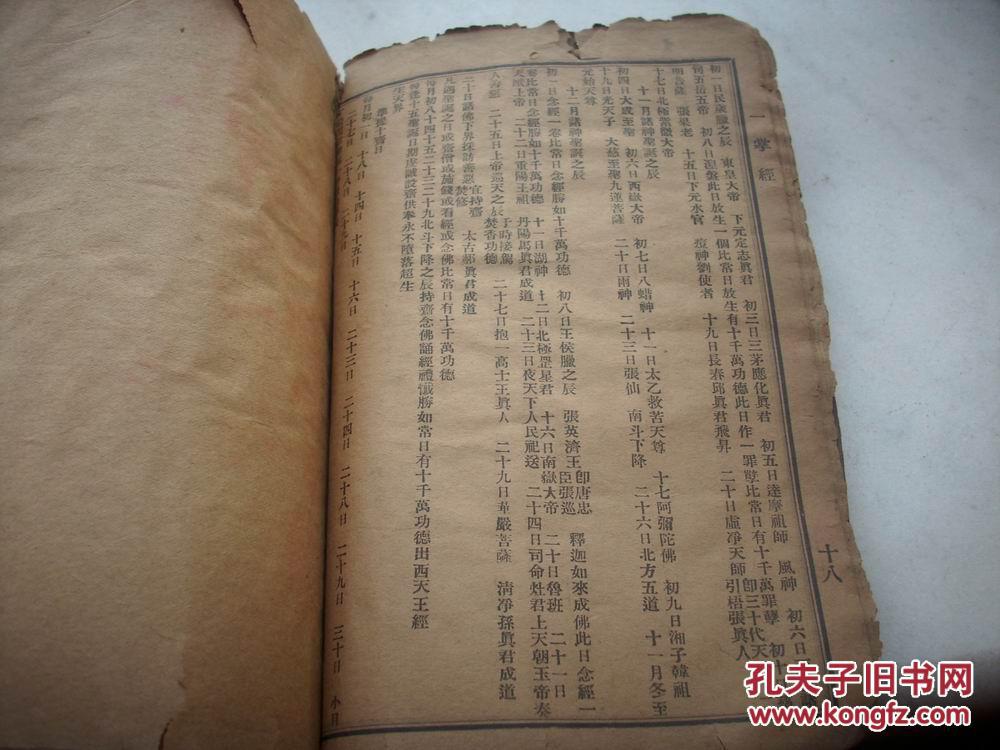 一掌經
十八
初一日民歲臘之辰 東皇大帝 下元定志眞君 初三日三茅應化眞君 初五日達摩祖師 風神 初六日
五岳五帝 初八日涅盤此日放生一個比常日放生有十千萬功德此日作一罪孽比常日有十千萬罪孽 初十
明 張果老 十五日下元水官 痘神劉使者 十九日長春邱眞君飛昇 二十日虛凈天師引梧張眞人 卽三十代天
十七日北極紫微大帝
十一月諸神聖誕之辰
初四日大成至聖 初六日西嶽大帝 初七日八蜡神 十一日太乙救苦天尊 十七阿彌陀佛 初九日湘子韓祖
十九日光天子 大慈至聖九蓮菩薩 二十日雨神 二十三日張仙 南斗下降 二十六日北方五道 十一月冬至
元始天尊
十二月諸神聖誕之辰
初一日念經一卷比常日念經勝如十千萬功德 初八日王侯臘之辰 張英濟王卽唐忠臣張巡 釋迦如來成佛此日念經一
卷比常日念經勝如十千萬功德 十一日湖神 十二日北極罡星君 十六日南嶽大帝 二十日魯班 二十一日
天猷上帝 二十二日重陽王祖 丹陽馬眞君成道 二十三日夜天下人民祀送 二十四日司命灶君上天朝玉帝奏
人善惡 二十五日上帝巡天之辰 子時接駕焚香功德 二十七日抱一高士王眞人 二十九日華嚴菩薩 清凈孫眞君成道
三十日諸佛下界採訪善惡 宜持齋焚修 太古郝眞君成道
凡遇聖誕之日或齋僧或施錢或看經或念佛比常日有十千萬功德
每月初八十四十五二十三二十九北斗下降之辰持齋念佛誦經禮懺勝如常日有十千萬功德出西天王經
每逢十五聖誕日期虔誠設齋供奉永不墮落超生
生天界
準提十齋日
每月初一日 十八日 十四日 十五日 十六日 二十三日 二十四日 二十八日 二十九日 三十日 小月
二十七日 二十八日 二十九日
孔夫子旧书网
www.kongfz.com